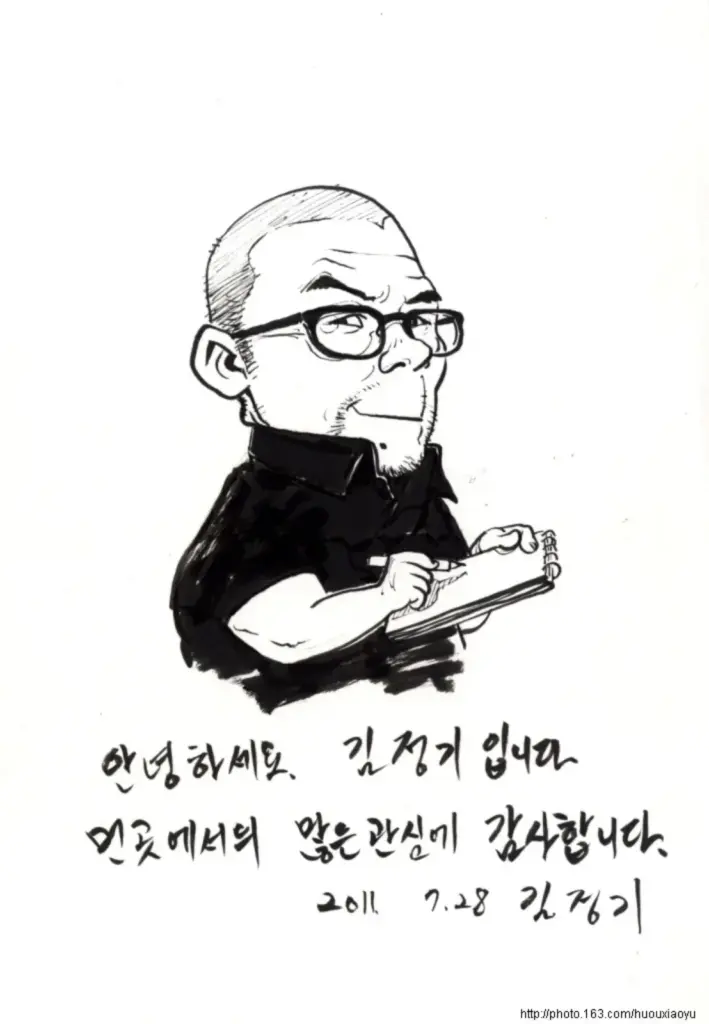 안녕하세요. 김정기 입니다
먼곳에서의 많은관심에 감사합니다.
2011. 7.28 김정기
http://photo.163.com/huouxiaoyu